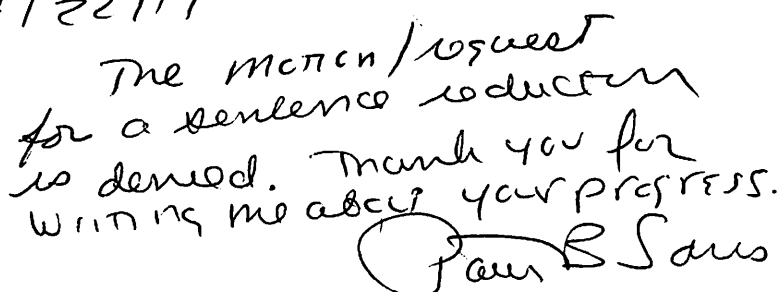 The motion/request
for a sentence reduction
is denied. Thank you for
writing me about your progress.